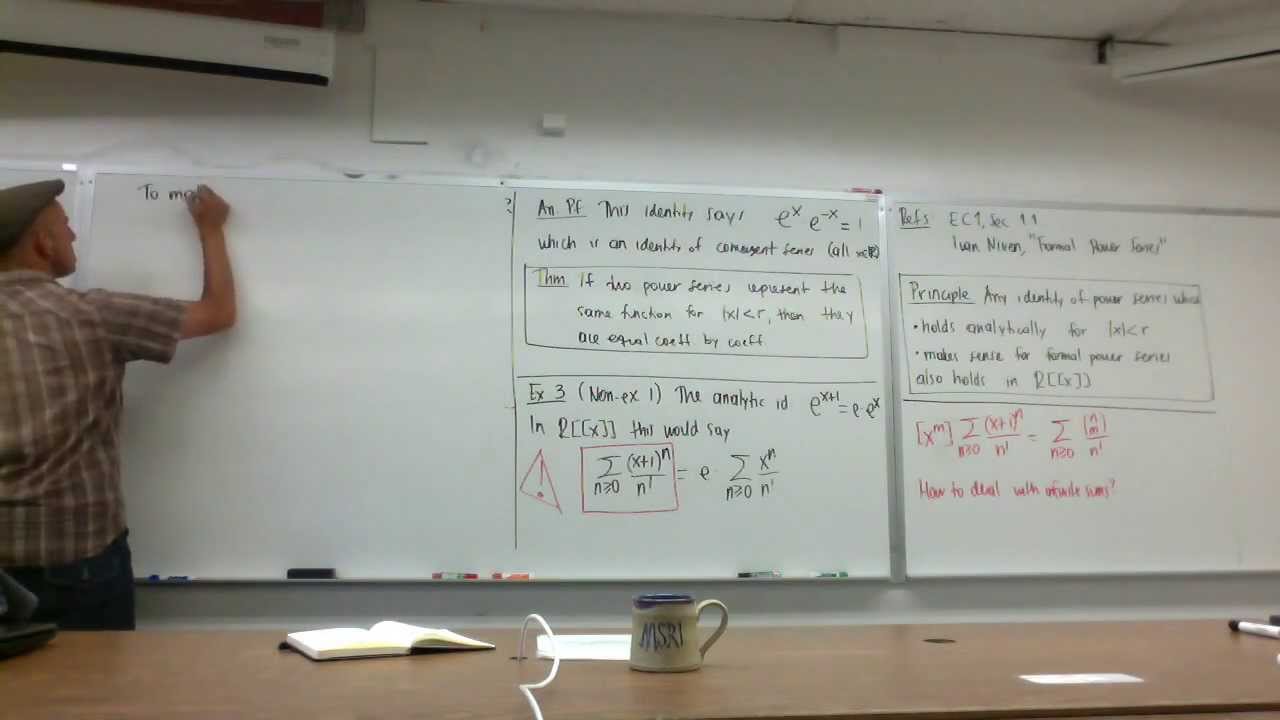 To ma
An Pf This identity says e^x e^-x = 1
which is an identity of convergent series (all x∈R)
Thm If two power series represent the
same function for |x|<r, then they
are equal coeff by coeff
Ex 3 (Non-ex 1) The analytic id e^x+1 = e·e^x
In R[[x]] this would say
! ∑ n≥0 (x+1)^n / n! = e · ∑ n≥0 x^n / n!
Refs EC1, Sec 1.1
Ivan Niven, "Formal Power Series"
Principle Any identity of power series which
• holds analytically for |x|<r
• makes sense for formal power series
also holds in R[[x]]
[x^m] ∑ n≥0 (x+1)^n / n! = ∑ n≥0 (n m) / n!
How to deal with infinite sums?
MSRI